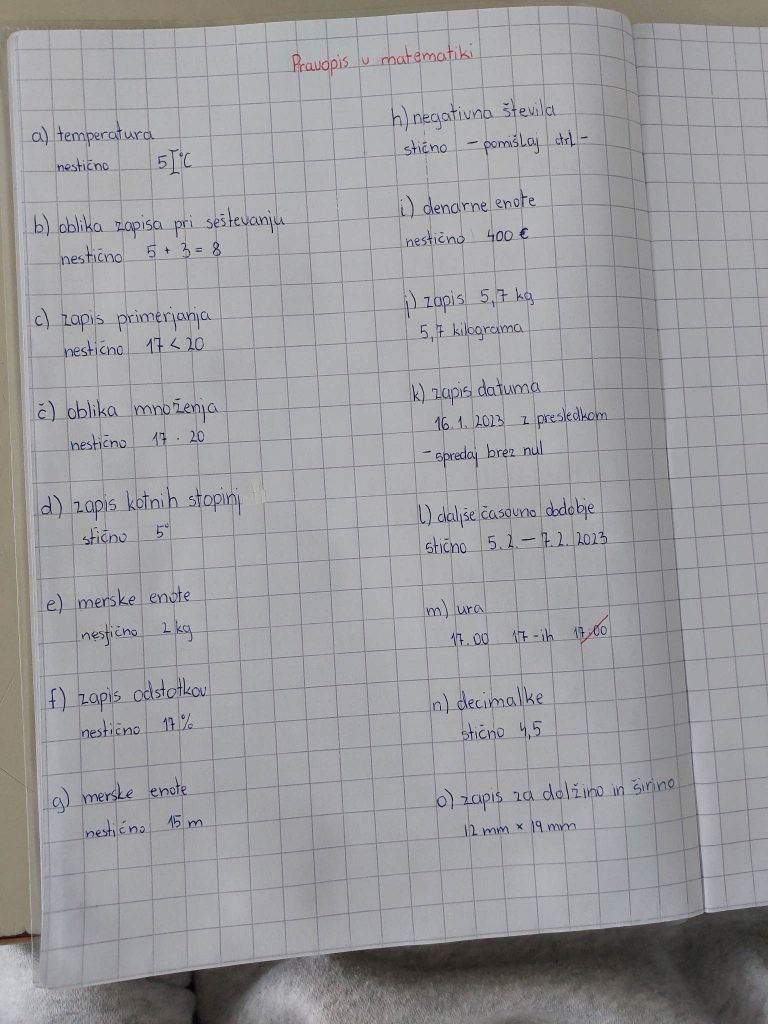 Pravopis v matematiki
a) temperatura
nestično 5 °C
b) oblika zapisa pri seštevanju
nestično 5 + 3 = 8
c) zapis primerjanja
nestično 17 < 20
č) oblika množenja
nestično 17 · 20
d) zapis kotnih stopinj
stično 5°
e) merske enote
nestično 2 kg
f) zapis odstotkov
nestično 17 %
g) merske enote
nestično 15 m
h) negativna števila
stično - pomišlaj ctrl -
i) denarne enote
nestično 400 €
j) zapis 5,7 kg
5,7 kilograma
k) zapis datuma
16. 1. 2023 z presledkom
- spredaj brez nul
l) daljše časovno obdobje
stično 5. 2. – 7. 2. 2023
m) ura
17.00 17-ih 17:00
n) decimalke
stično 4,5
o) zapis za dolžino in širino
12 mm × 19 mm